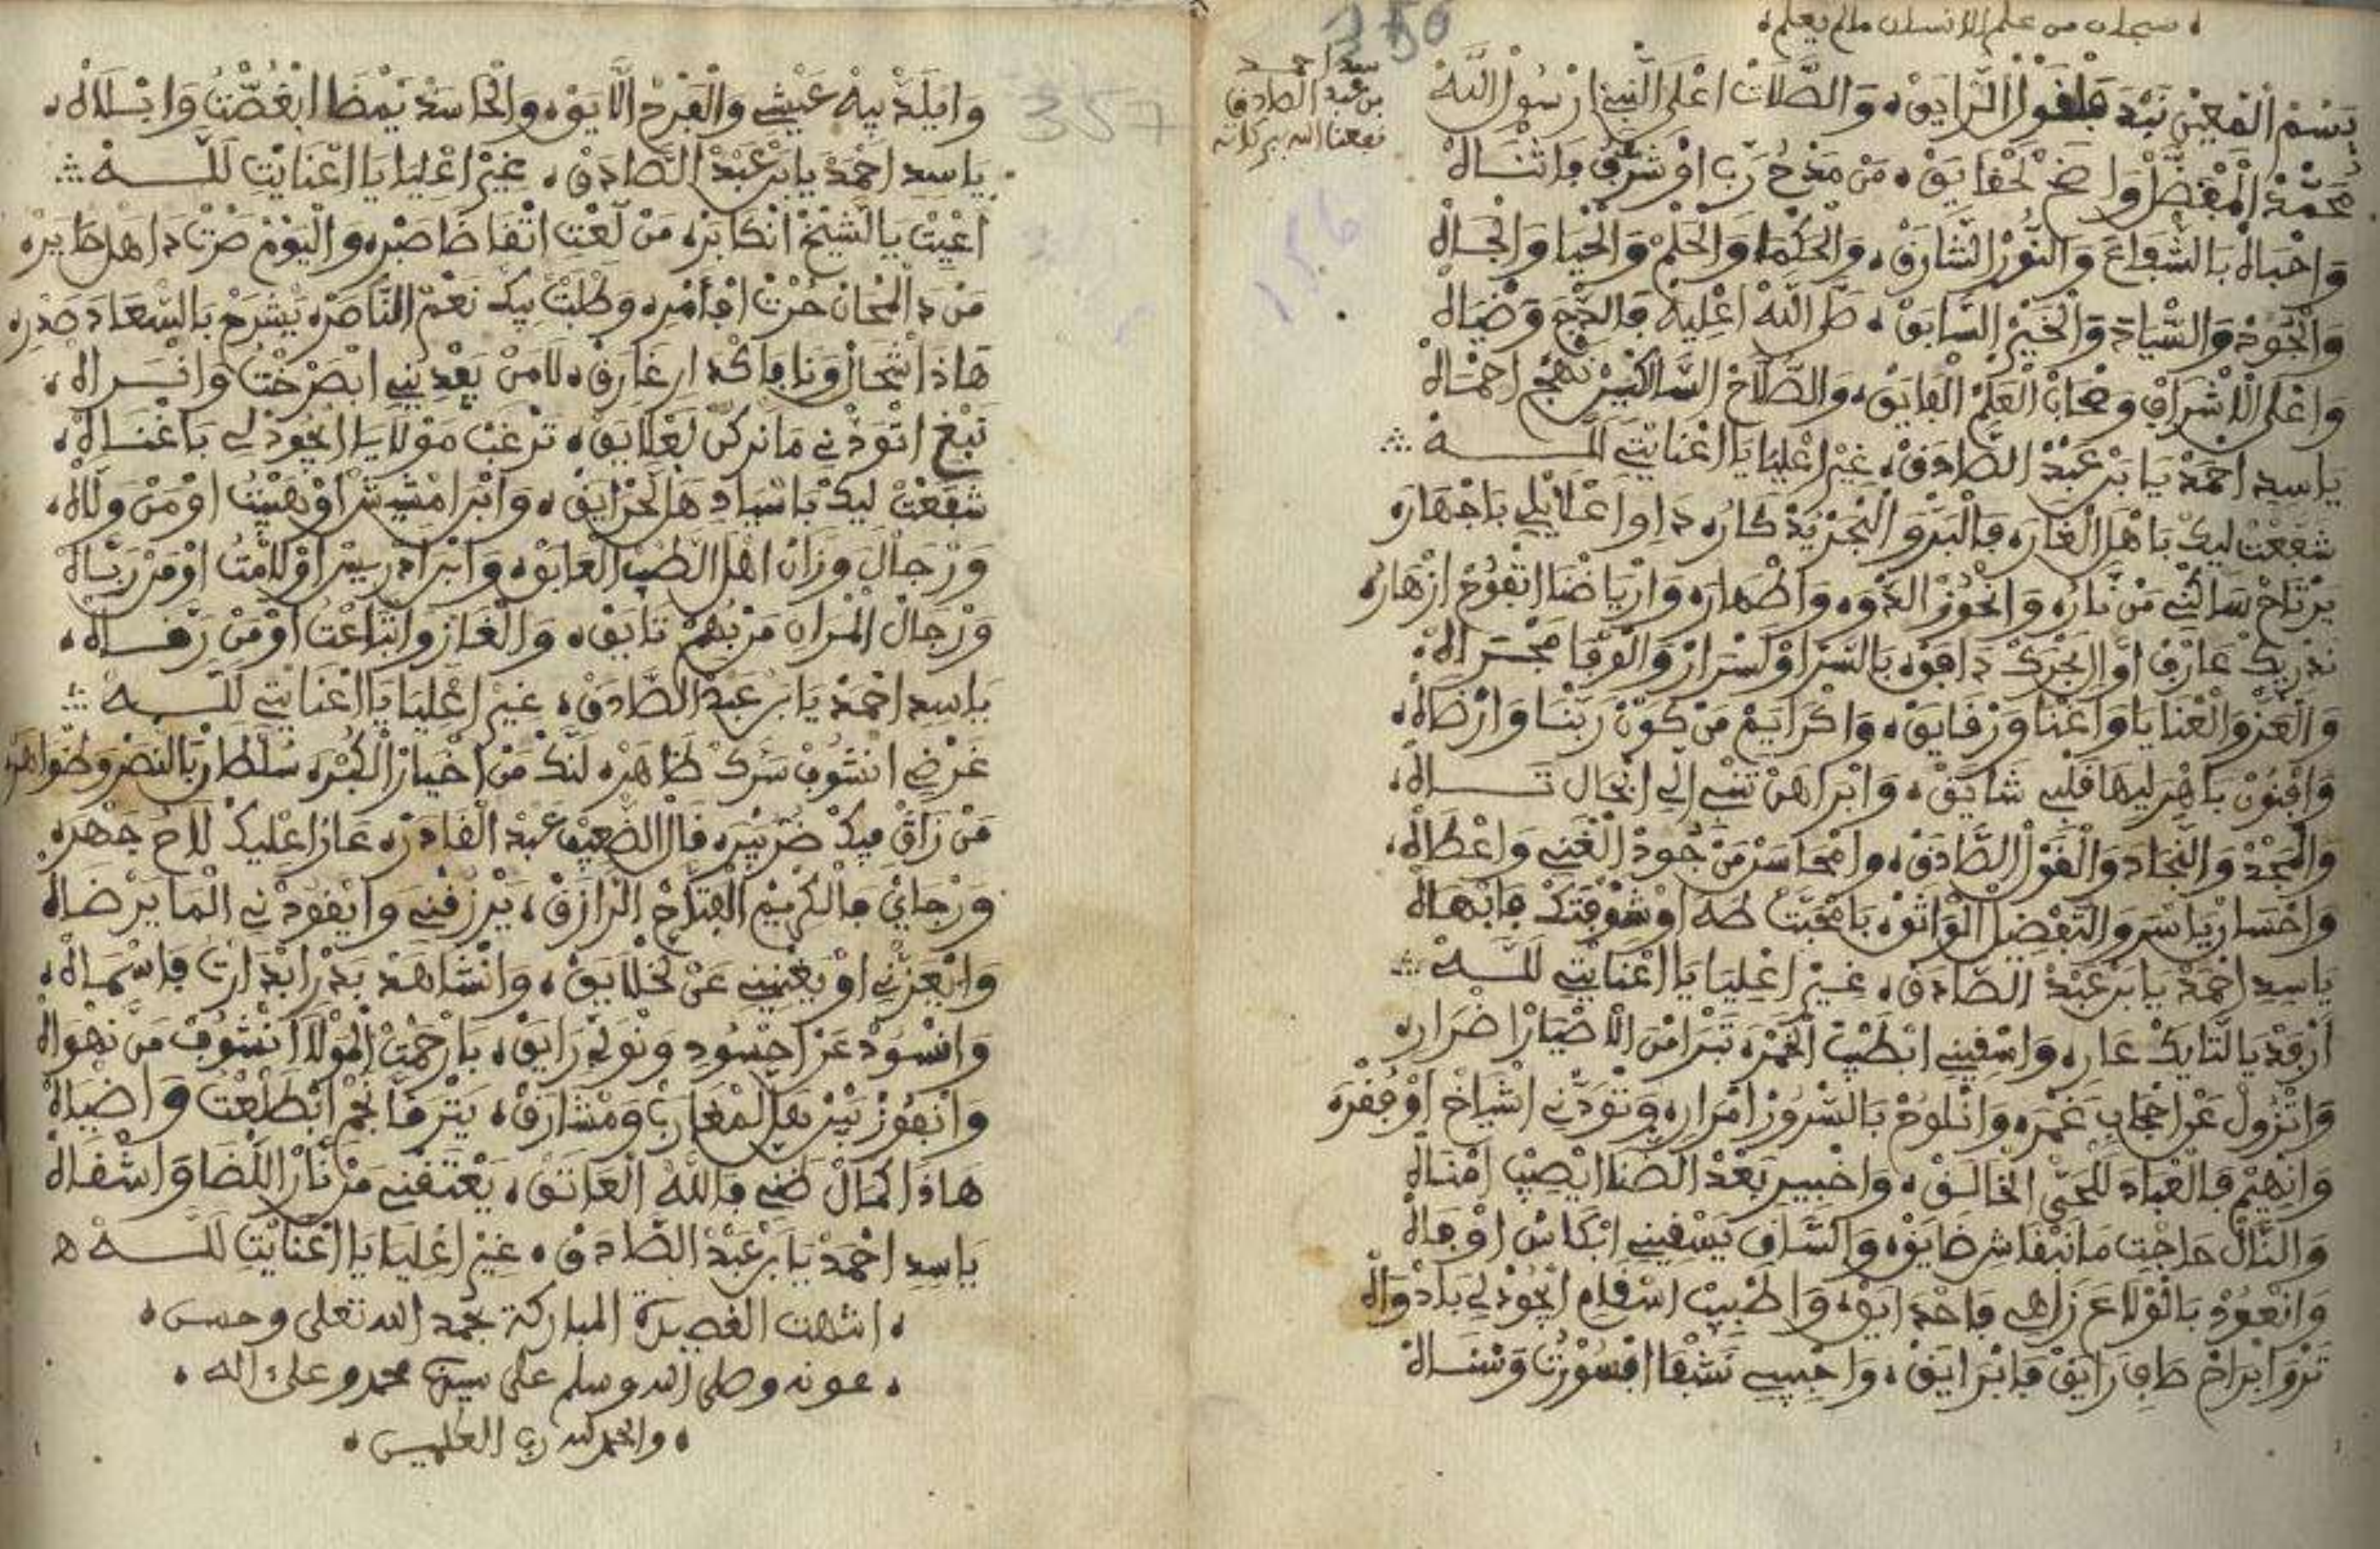 سبحان من علم الانسان مالم يعلم
150
سيد احمد
بن عبد الصادق
نفعنا الله ببركاته
بَسْمْ الْمُعِينْ نَبْدَ فَلْقَوْلْ الرَّايَقْ، وَالصَّلَاتْ اعْلَى النَّبِي ارْسُولْ اللَّهْ
مُحَمَّدْ الْمُفَضَّلْ وَاضَحْ لَحْقَايَقْ، مَنْ مَدْحُ رَبِّ اوْ شَرّفُ وَاثْنَاهْ
وَاحْبَاهْ بَالشّفَاعَ وَالنُّورْ الشَّارَقْ، وَالْحَكْمَا وَالْحَلْمْ وَالْحَيَا وَالْجَاهْ
وَالْجُودْ وَالسّيَادَ وَالْخَيْرْ السَّابَقْ، صَلَّى اللَّهْ اعْلِيهْ فَالدّجَ وَضْيَاهْ
وَاعْلَى الَاشْرَافْ وَصْحَابْ الْعَلْمْ الْفَايَقْ، وَالصُّلَّاحْ السَّالْكِينْ نَهْجْ احْمَاهْ
يَاسِدِ احْمَدْ يَا بَنْ عَبْدْ الصَّادَقْ، غِيرْ اعْلِيَا يَا اعْنَايْتِي لَلَّهْ
شَفَعْتْ لِيكْ بَاهْلْ الْغَارَه فَالْبَرّْ وَالْبْحَرْ يَدْكَارُه دَاوِ اعْلَايْلِي بَاجْهَارَه
يَرْتَاحْ سَاكْنِي مَنْ نَارُه وَانْحُوزْ الدّْوَه وَاطْهَارَه وَارْيَاضْنَا اتْفُوحْ ازْهَارُه
نَدْرِيكْ عَارَفْ اوَّالْ بَحْرَكْ دَافَقْ بَالسَّرْ اوْ لَسْرَارْ وَالْوْفَا مَجْرَاهْ
وَالْعَزّْ وَالْعْنَايَا وَاغْنَا وَرْقَايَقْ، وَاكْرَايَمْ مَنْ كَوّنْ رَبْنَا وَارْضَاهْ
وَافْنُونْ بَاهْرْ لِيهَا قَلْبِي شَايَقْ، وَابْرَاهَنْ تَنْبِي الْحَالْ
وَالْمَجْدْ وَالنّْجَادَ وَالْقَوْلْ الصَّادَقْ، وَامْحَاسَنْ مَنْ جُودْ الْغْنِي وَاعْطَاهْ
وَاحْسَانْ يَاسَرْ وَالتَّفْضِيلْ الْوَاثَقْ، بَامْحَبّتْ طَهَ اوْ شَوْقْتَكْ فَابْهَاهْ
يَاسِدِ احْمَدْ يَا بَنْ عَبْدْ الصَّادَقْ، غِيرْ اعْلِيَا يَا اعْنَايْتِي لَلَّهْ
ارْفَدْ يَا التَّايَكْ عَارِه وَاسْقِينِي انْطِيبْ الْخَمْرَه نَبْرَا مْنْ الَاضْيَارْ اضْرَارِه
وَانْزُولْ عَنْ احْجَابِ غَمْرَه وَانْلُوحْ بَالسّْرُورْ امْرَارِه وَتْوَدّْنِي اشْيَاخْ اوْ فُقْرَه
وَانْهِيمْ فَالْعْبَادَ لَلْحَيّْ الْخَالَقْ، وَاحْبِيبْ بَعْدْ الضّنَا ايْصِيبْ امْنَاهْ
وَالنَّالْ حَاجْتِي مَا نَبْقَاشِ ضَايَقْ، وَالسَّاقِ يَسْقِينِي ابْكَاسْ اوْفَاهْ
وَانْعُودْ بَالْوْلَاعَ زَاهِي فَاحْدَايَقْ، وَاطْبِيبْ اسْقَامِ ايْجُودْ لِي بَادْوَاهْ
نَزْوَا ابْرَاحْ صَافِ رَايَقْ فَابْرَايَقْ، وَاحْبِيبِي نَشْفَا وَسْنَاهْ
357
156
وَايْلَدْ بِيهْ عَيْشِي وَالْفَرْحْ الَايَقْ، وَالْحَاسَدْ يَمْضَا ابْغُصّْتُ وَابْلَاهْ
يَاسِدِ احْمَدْ يَا بَنْ عَبْدْ الصَّادَقْ، غِيرْ اعْلِيَا يَا اعْنَايْتِي لَلَّهْ
اعْيِيتْ يَا الشّيْخْ انْكَابَرْه مَنْ لَعْتِ اتْقَاضَا صَبْرِه وَالْيَوْمْ صَرْتْ دَاهَلْ حَايَرْه
مَنْ دَ الْمْحَانْ حُرْتْ افَامْرِه وَطْلَبْتْ بِيكْ نَعْمْ النَّاصَرْه يَشْرَحْ بَالسّْعَادَ صَدْرِه
هَاذَا شْحَالْ وَنَا فَاكْدَارِ غَارَقْ، لَا مَنْ يَفْدِينِي ابْصَرْخْتُ وَانْسْرَاهْ
نَبْغِ اتْوَدْنِي مَا نَرْكَنْ لَعْلَايَقْ، تَرْغَبْ مَوْلَايَ ايْجُودْ لِي بَاغْنَاهْ
شَفَعْتْ لِيكْ بَاسْيَادِ هَلْ لَحْرَايَقْ، وَابْنْ امْشِيشْ اوْ هَيْبْتُ اوْ مَنْ وَلَاهْ
وَرْجَالَ وَزَانْ اهْلْ الطّبْ الْعَابَقْ، وَابْنْ ادْرِيسْ اوْ لَامْتُ اوْ مَنْ رَبَّاهْ
وَرْجَالْ الْمْرَانِ مَنْ بْهُمْ تَايَقْ، وَالْغَازِ وَاتْبَاعْتُ اوْ مَنْ رَقَّاهْ
يَاسِدِ احْمَدْ يَا بَنْ عَبْدْ الصَّادَقْ، غِيرْ اعْلِيَا يَا اعْنَايْتِي لَلَّهْ
غَرْضِي انْشُوفْ سَرّكْ ظَاهَرْه لَنّكْ مَنْ اخْيَارْ الْكُبْرَه سُلْطَانْ بَالنّصَرْ وَظْوَاهَرْه
مَنْ زَاقْ فِيكْ ضَرْبِيرَه قَالْ الضّعِيفْ عَبْدْ الْقَادَرْه عَارَا عْلِيكْ لَاحُ جَهْرَه
وَرْجَايَ فَالْكْرِيمْ الْفْتَّاحْ الرَّازَقْ، يَرْزَقْنِي وَايْقُودْنِي الْمَا يَرْضَاهْ
وَايْعَزّْنِي اوْ يَغْنِينِي عَنْ لَخْلَايَقْ، وَانْشَاهَدْ بَدْرْ ابْدَارَتْ فَاسْمَاهْ
وَانْسُودْ عَنْ احْسُودِ وَنْوَلِّي رَايَقْ، بَارْحَمْتْ الْمُولَا انْشُوفْ مَنْ نَهْوَاهْ
وَانْفُوزْ بَيْنْ هَلْ لَمْغَارَبْ وَمْشَارَقْ، يَتْرَقَّا نَجْمْ ابْطَلْعْتُ وَاضْيَاهْ
هَاذَا كْمَالْ ظَنِّي فَاللَّهْ الْعَاتَقْ، يَعْتَقْنِي مَنْ نَارْ اللّْضَا وَاشْقَاهْ
يَاسِدِ احْمَدْ يَا بَنْ عَبْدْ الصَّادَقْ، غِيرْ اعْلِيَا يَا اعْنَايْتِي لَلَّهْ ه
انتهت القصيدة المباركة بحمد الله تعلى وحسن
عونه وصلى الله وسلم على سيدنا محمد وعلى اله
والحمد لله رب العلمين